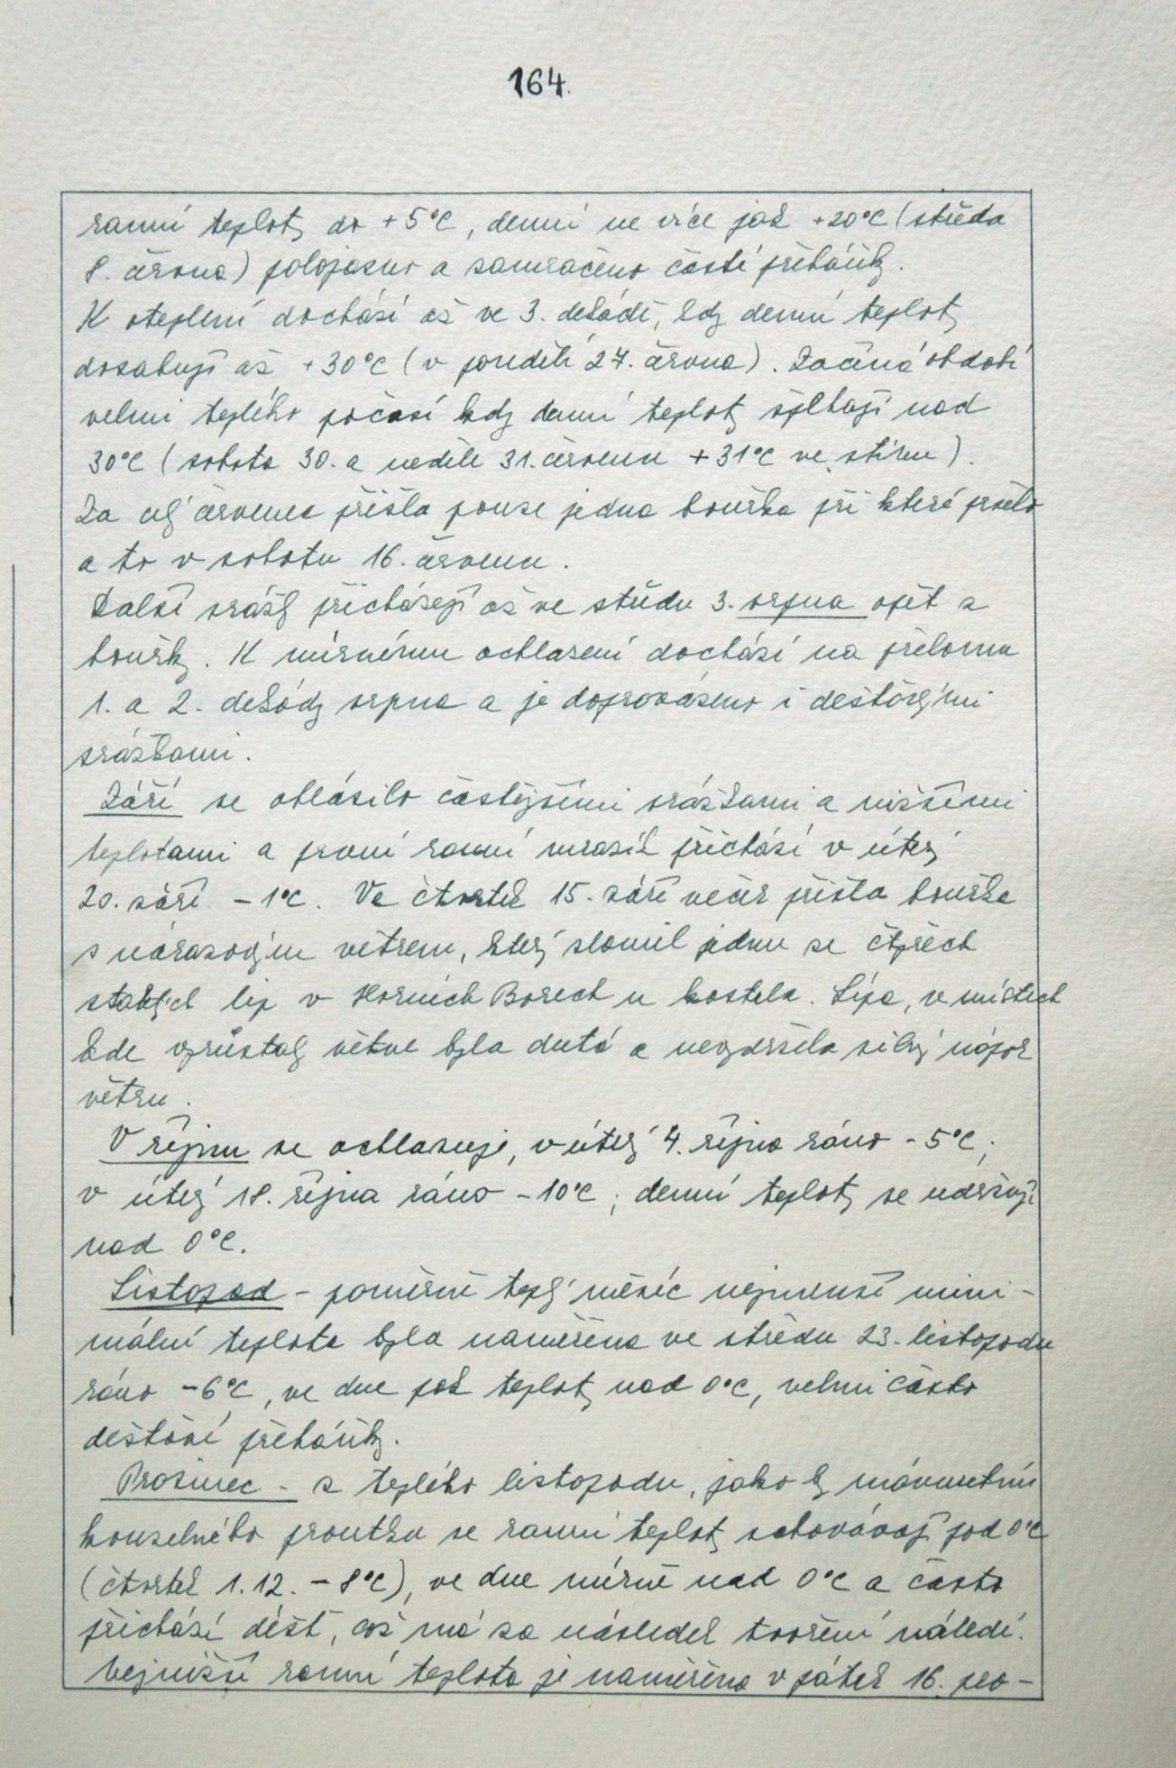 164.
ranní teploty do +5°C, denní ne více jak +20°C (středa
8. června) polojasno a zamračeno časté přeháňky.
K oteplení dochází až ve 3. dekádě, kdy denní teploty
dosahují až +30°C (v pondělí 27. června). Začíná období
velmi teplého počasí kdy denní teploty šplhají nad
30°C (sobota 30. a neděle 31. července +31°C ve stínu).
Za celý červenec přišla pouze jedna bouřka při které pršelo
a to v sobotu 16. července.
Další srážky přicházejí až ve středu 3. srpna opět z
bouřky. K mírnému ochlazení dochází na přelomu
1. a 2. dekády srpna a je doprovázeno i dešťovými
srážkami.
Září se ohlásilo častějšími srážkami a nižšími
teplotami a první ranní mrazík přichází v úterý
20. září -1°C. Ve čtvrtek 15. září večer přišla bouřka
s nárazovým větrem, který zlomil jednu ze čtyřech
starých lip v Horních Borech u kostela. Lípa, v místech
kde vyrůstaly větve byla dutá a nevydržela silný nápor
větru.
V říjnu se ochlazuje, v úterý 4. října ráno -5°C,
v úterý 18. října ráno -10°C, denní teploty se udržují
nad 0°C.
Listopad - poměrně teplý měsíc nejmenší mini-
mální teplota byla naměřena ve středu 23. listopadu
ráno -6°C, ve dne pak teploty nad 0°C, velmi často
dešťové přeháňky.
Prosinec - z teplého listopadu, jako by mávnutím
kouzelného proutku se ranní teploty schovávají pod 0°C
(čtvrtek 1.12. -8°C), ve dne mírně nad 0°C a často
přichází déšť, což má za následek tvoření náledí.
Nejnižší ranní teplota je naměřena v pátek 16. pro-